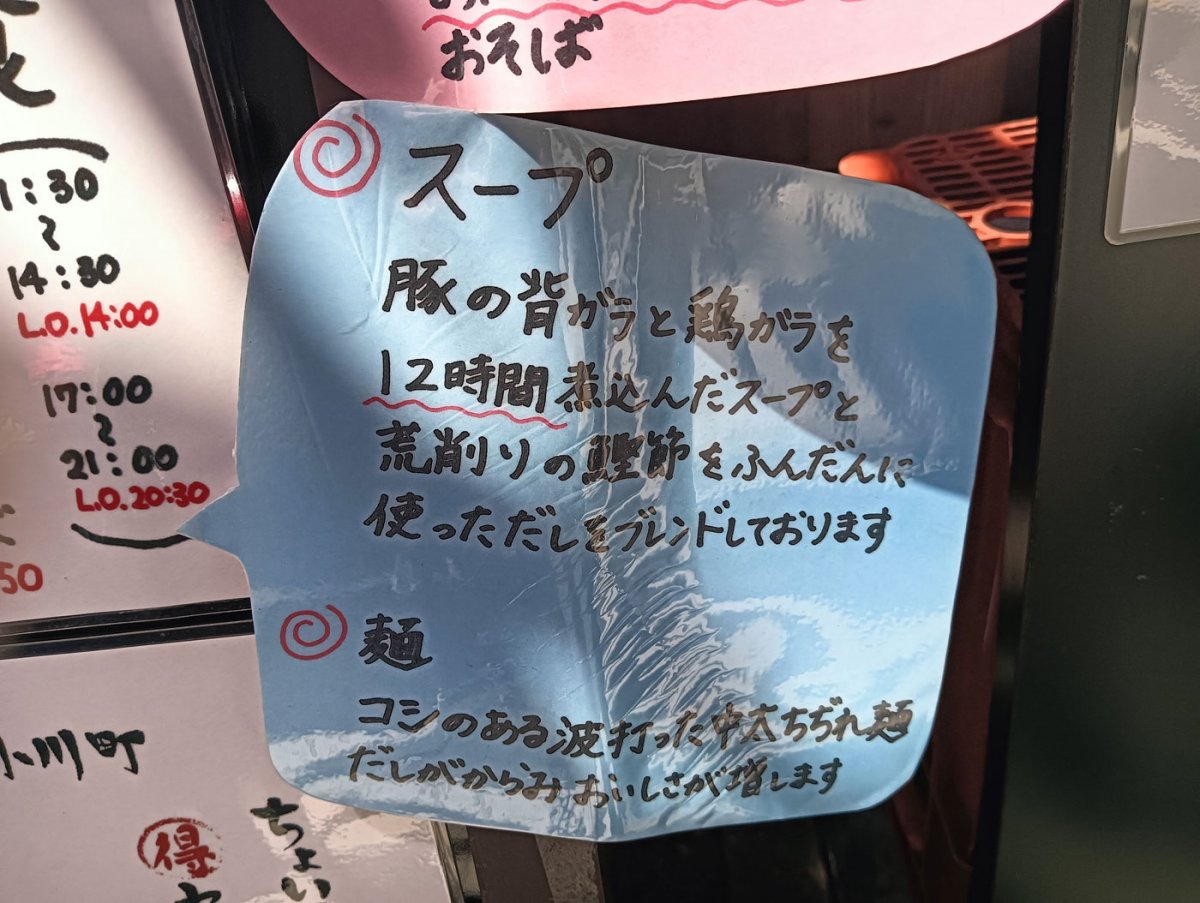 おそば
1:30
〜
14:30
L.O.14:00
17:00
〜
21:00
L.O.20:30
50
スープ
豚の背ガラと鶏がラを
12時間煮込んだスープと
荒削りの鰹節をふんだんに
使っただしをブレンドしております
麺
コシのある波打った中太ちぢれ麺
だしがからみおいしさが増します
小川町
得
ちょい